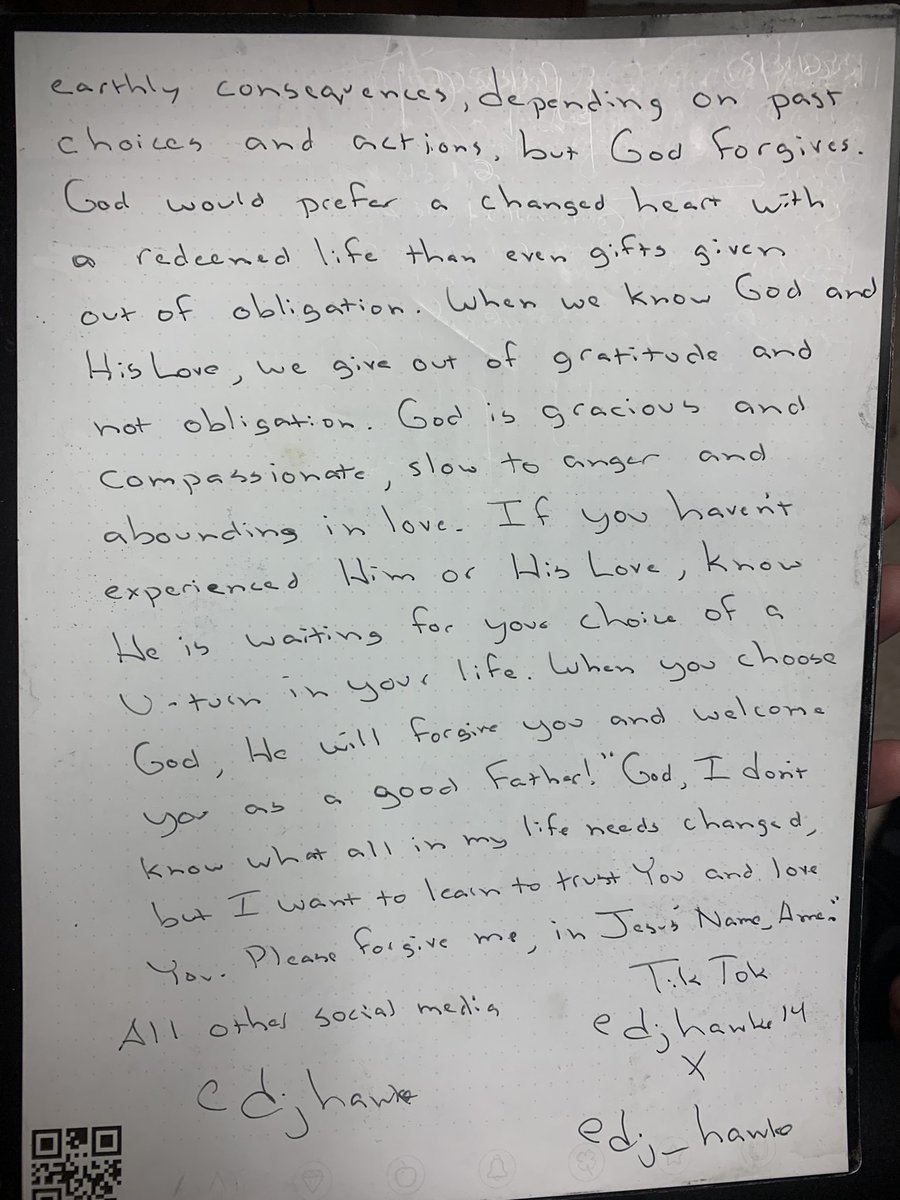 earthly consequences, depending on past
choices and actions, but God forgives.
God would prefer a changed heart with
a redeemed life than even gifts given
out of obligation. When we know God and
His Love, we give out of gratitude and
not obligation. God is gracious and
compassionate, slow to anger and
abounding in love. If you haven't
experienced Him or His Love, know
He is waiting for your choice of a
U-turn in your life. When you choose
God, He will forgive you and welcome
you as a good Father! "God, I don't
know what all in my life needs changed,
but I want to learn to trust You and love
You. Please forgive me, in Jesus' Name, Amen."
All other social media
edjhawke
Tik Tok
edjhawke14
X
edj_hawke